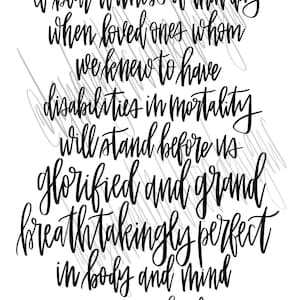 when loved ones whom
we knew to have
disabilities in mortality
will stand before us
glorified and grand
breathtakingly perfect
in body and mind